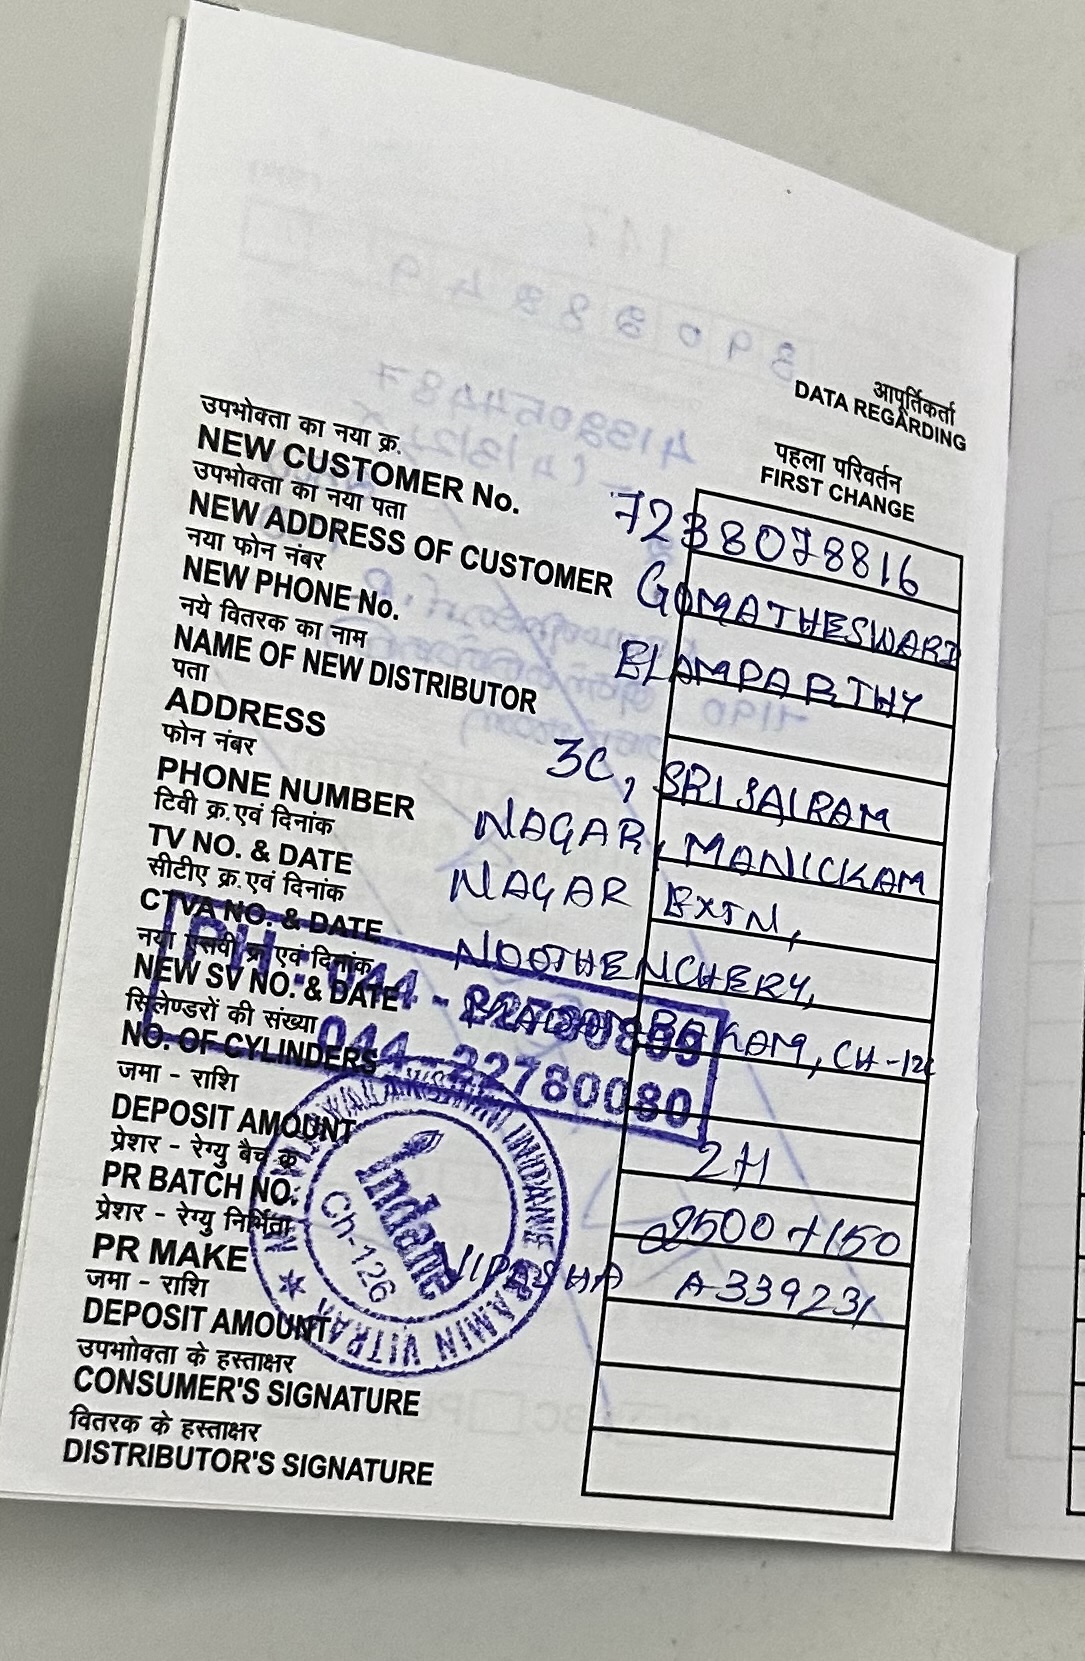 आपूर्तिकर्ता
DATA REGARDING
पहला परिवर्तन
FIRST CHANGE
उपभोक्ता का नया क्र.
NEW CUSTOMER No.
7238078816
उपभोक्ता का नया पता
NEW ADDRESS OF CUSTOMER
GOMATHESWARI
नया फोन नंबर
NEW PHONE No.
ELAMPARTHY
नये वितरक का नाम
NAME OF NEW DISTRIBUTOR
पता
ADDRESS
3C, SRI SAIRAM
फोन नंबर
PHONE NUMBER
NAGAR, MANICKAM
टिवी क्र.एवं दिनांक
TV NO. & DATE
NAGAR EXTN,
सीटीए क्र.एवं दिनांक
CTVA NO. & DATE
NOOTHENCHERY,
नया एसवी क्र एवं दिनांक
NEW SV NO. & DATE
CH-126
PH : 044 -
044 - 22780080
सिलेण्डरों की संख्या
NO. OF CYLINDERS
जमा - राशि
DEPOSIT AMOUNT
2H
प्रेशर - रेग्यु बैच क्र
PR BATCH NO.
2500 +150
प्रेशर - रेग्यु निर्मिता
PR MAKE
A339231
जमा - राशि
DEPOSIT AMOUNT
उपभोक्ता के हस्ताक्षर
CONSUMER'S SIGNATURE
वितरक के हस्ताक्षर
DISTRIBUTOR'S SIGNATURE
INDANE GRAMIN VITRAK
Indane
Ch-126